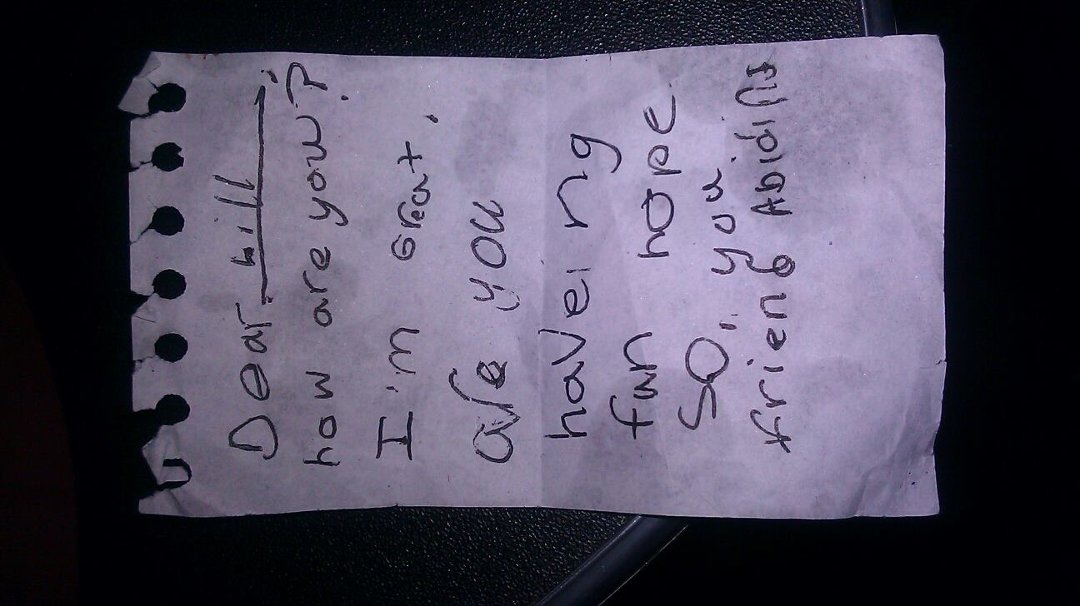 Dear hill
how are you?
I'm Great.
are you
haveing
fun hope
SO, you
friend Abidin